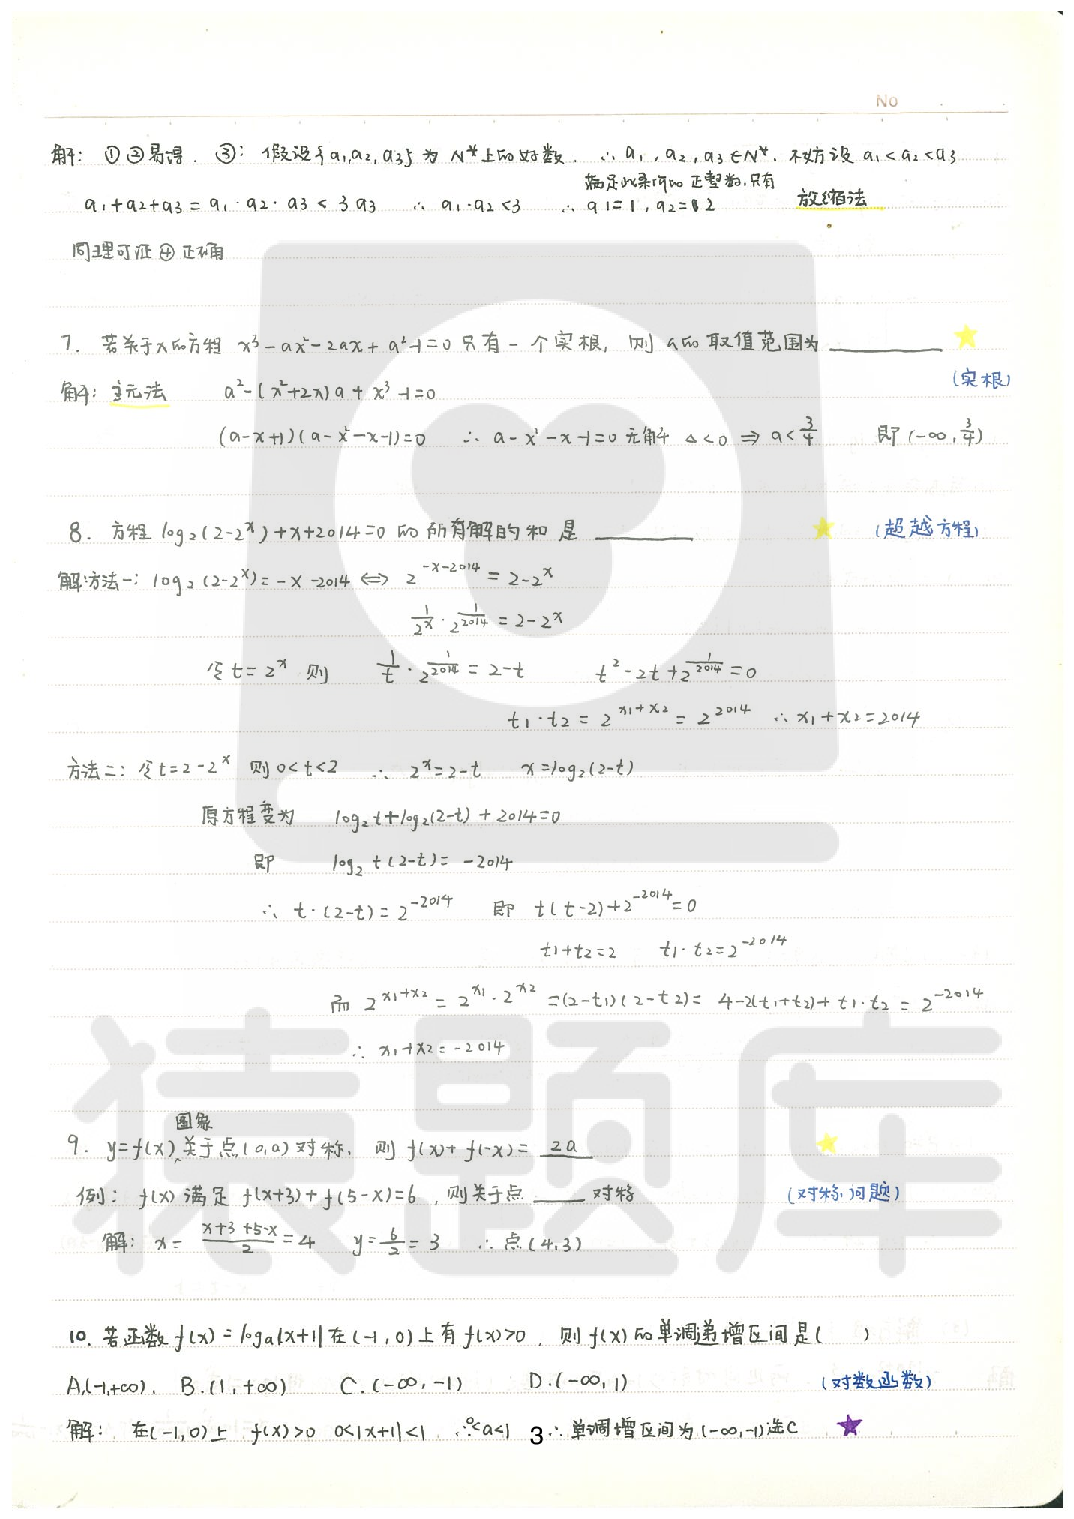 No
解: ①②易得. ③: 假设{a₁,a₂,a₃}为N*上的好数. ∴a₁,a₂,a₃∈N*. 不妨设a₁<a₂<a₃
满足此条件的正整数.只有
a₁+a₂+a₃=a₁·a₂·a₃<3a₃ ∴a₁·a₂<3 ∴a₁=1,a₂=2 放缩法
同理可证④正确
7. 若关于x的方程 x³-ax²-2ax+a²-1=0只有一个实根, 则a的取值范围为________
(实根)
解: 主元法 a²-(x²+2x)a+x³-1=0
(a-x+1)(a-x²-x-1)=0 ∴a-x²-x-1=0无解 △<0⇒a<3/4 即(-∞,3/4)
8. 方程log₂(2-2ˣ)+x+2014=0的所有解的和是________ (超越方程)
解:方法一: log₂(2-2ˣ)=-x-2014⇔2^(-x-2014)=2-2ˣ
1/2ˣ·1/2^2014=2-2ˣ
令t=2ˣ则 1/t·2^(1/2014)=2-t t²-2t+2^(1/2014)=0
t₁·t₂=2^(x₁+x₂)=2^2014 ∴x₁+x₂=2014
方法二: 令t=2-2ˣ则0<t<2 ∴2ˣ=2-t x=log₂(2-t)
原方程变为 log₂t+log₂(2-t)+2014=0
即 log₂t(2-t)=-2014
∴t·(2-t)=2^-2014 即 t(t-2)+2^-2014=0
t₁+t₂=2 t₁·t₂=2^-2014
而2^(x₁+x₂)=2^x₁·2^x₂=(2-t₁)(2-t₂)=4-2(t₁+t₂)+t₁·t₂=2^-2014
∴x₁+x₂=-2014
图象
9. y=f(x)关于点(0,a)对称, 则f(x)+f(-x)=2a
例: f(x)满足f(x+3)+f(5-x)=6, 则关于点____对称 (对称问题)
解: x=(x+3+5-x)/2=4 y=6/2=3 ∴点(4,3)
10. 若函数f(x)=logₐ|x+1|在(-1,0)上有f(x)>0, 则f(x)的单调递增区间是( )
A.(-1,+∞). B.(1,+∞) C.(-∞,-1) D.(-∞,1) (对数函数)
解: 在(-1,0)上 f(x)>0 0<|x+1|<1 ∴0<a<1 ∴单调增区间为(-∞,-1)选C
3
猿题库